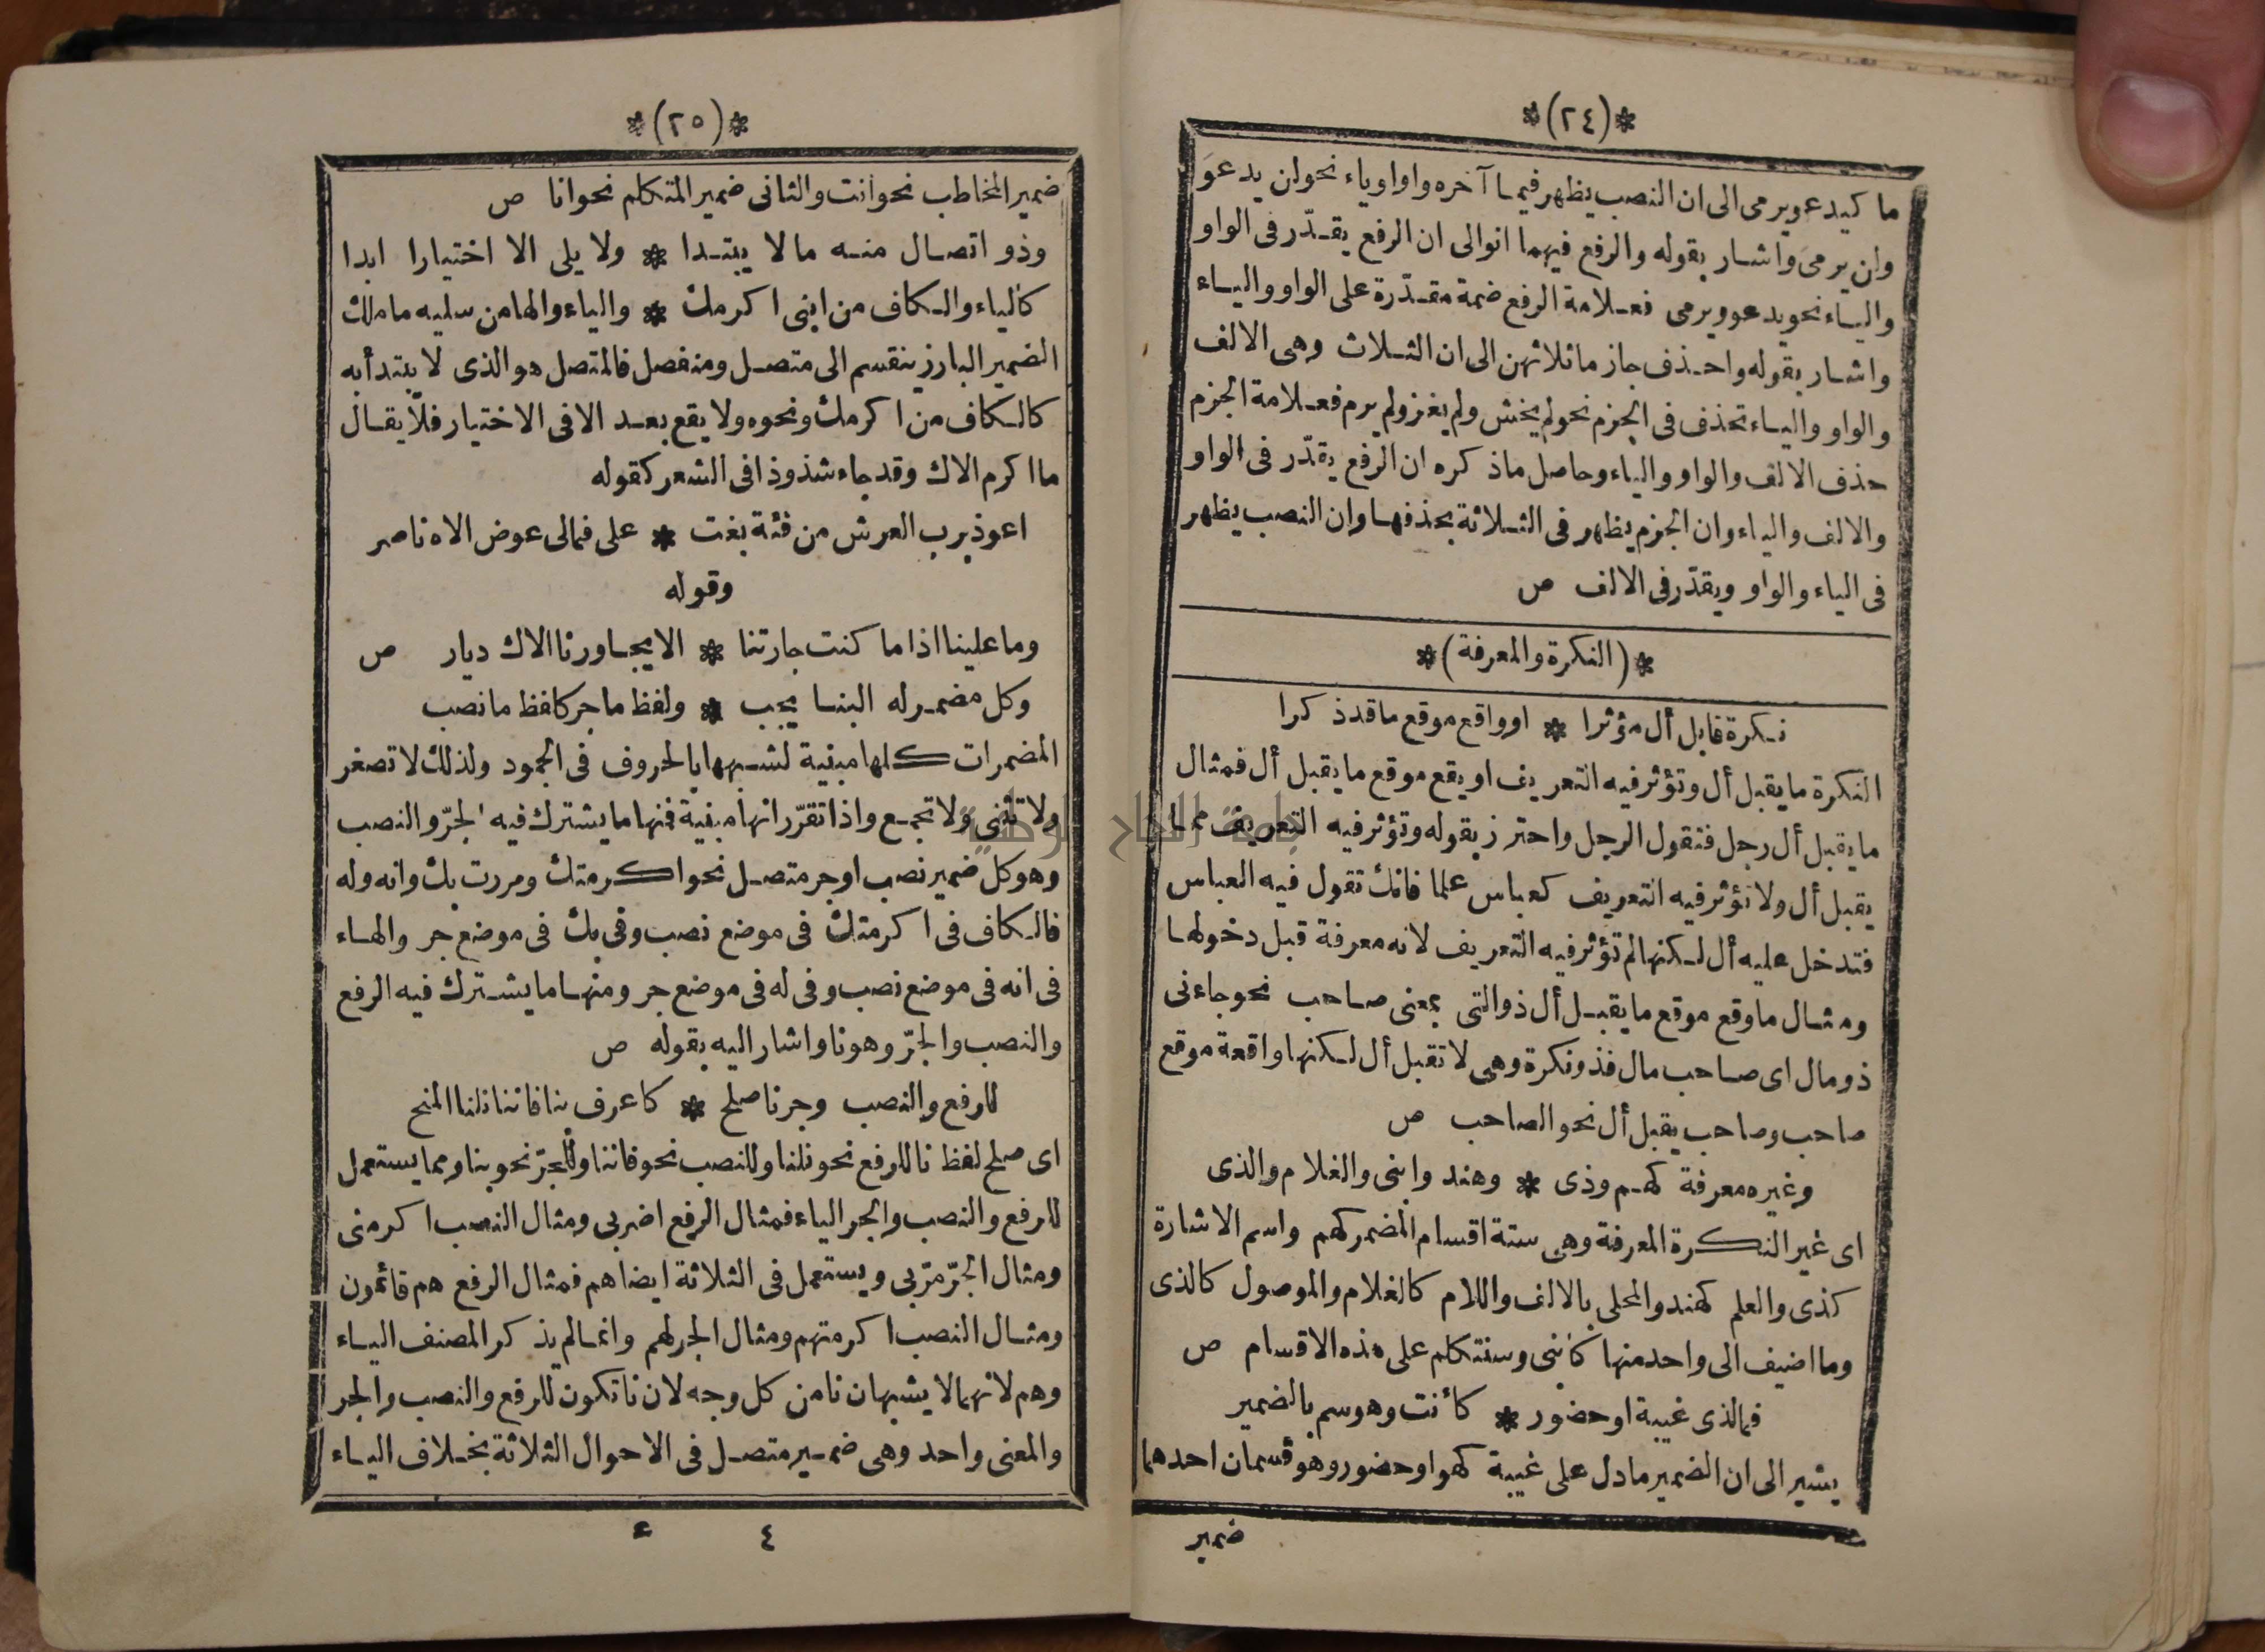 *(٢٤)*
ما كيدعو يرمى الى ان النصب يظهر فيما آخره واو او ياء نحو ان يدعوَ
وان يرمىَ واشار بقوله والرفع فيهما انوالى ان الرفع يقدّر فى الواو
والياء نحو يدعو ويرمى فعلامة الرفع ضمة مقدّرة على الواو والياء
واشار بقوله واحذف جازما ثلاثهن الى ان الثلاث وهى الالف
والواو والياء تحذف فى الجزم نحو لم يخش ولم يغز ولم يرم فعلامة الجزم
حذف الالف والواو والياء وحاصل ما ذكره ان الرفع يقدّر فى الواو
والالف والياء وان الجزم يظهر فى الثلاثة بحذفها وان النصب يظهر
فى الياء والواو ويقدّر فى الالف ص
*(النكرة والمعرفة)*
نكرة قابل أل مؤثرا * او واقع موقع ما قد ذكرا
النكرة ما يقبل أل وتؤثر فيه التعريف او يقع موقع ما يقبل أل فمثال
ما يقبل أل رجل فتقول الرجل واحترز بقوله وتؤثر فيه التعريف مما
يقبل أل ولا تؤثر فيه التعريف كعباس علما فانك تقول فيه العباس
فتدخل عليه أل لكنها لم تؤثر فيه التعريف لانه معرفة قبل دخولها
ومثال ما وقع موقع ما يقبل أل ذو التى بمعنى صاحب نحو جاءنى
ذو مال اى صاحب مال فذو نكرة وهى لا تقبل أل لكنها واقعة موقع
صاحب وصاحب يقبل أل نحو الصاحب ص
وغيره معرفة كهم وذى * وهند وابنى والغلام والذى
اى غير النكرة المعرفة وهى ستة اقسام المضمر كهم واسم الاشارة
كذى والعلم كهند والمحلى بالالف واللام كالغلام والموصول كالذى
وما اضيف الى واحد منها كابنى وسنتكلم على هذه الاقسام ص
فمالذى غيبة او حضور * كأنت وهو سم بالضمير
يشير الى ان الضمير ما دل على غيبة كهو او حضور وهو قسمان احدهما
ضمير
*(٢٥)*
ضمير المخاطب نحو انت والثانى ضمير المتكلم نحو انا ص
وذو اتصال منه ما لا يبتدا * ولا يلى الا اختيارا ابدا
كالياء والكاف من ابنى اكرمك * والياء والها من سليه ما ملك
الضمير البارز ينقسم الى متصل ومنفصل فالمتصل هو الذى لا يبتدأ به
كالكاف من اكرمك ونحوه ولا يقع بعد الا فى الاختيار فلا يقال
ما اكرم الاك وقد جاء شذوذا فى الشعر كقوله
اعوذ برب العرش من فئة بغت * على فمالى عوض الاه ناصر
وقوله
وما علينا اذا ما كنت جارتنا * الا يجاورنا الاك ديار ص
وكل مضمر له البنا يجب * ولفظ ما جر كلفظ ما نصب
المضمرات كلها مبنية لشبهها بالحروف فى الجمود ولذلك لا تصغر
ولا تثنى ولا تجمع واذا تقرّر انها مبنية فمنها ما يشترك فيه الجرّ والنصب
وهو كل ضمير نصب او جر متصل نحو اكرمتك ومررت بك وانه وله
فالكاف فى اكرمتك فى موضع نصب وفى بك فى موضع جر والهاء
فى انه فى موضع نصب وفى له فى موضع جر ومنها ما يشترك فيه الرفع
والنصب والجرّ وهو نا واشار اليه بقوله ص
للرفع والنصب وجر نا صلح * كاعرف بنا فاننا نلنا المنح
اى صلح لفظ نا للرفع نحو نلنا وللنصب نحو فاننا وللجرّ نحو بنا ومما يستعمل
للرفع والنصب والجر الياء فمثال الرفع اضربى ومثال النصب اكرمنى
ومثال الجرّ مرّ بى ويستعمل فى الثلاثة ايضا هم فمثال الرفع هم قائمون
ومثال النصب اكرمتهم ومثال الجر لهم وانما لم يذكر المصنف الياء
وهم لانهما لا يشبهان نا من كل وجه لان نا تكون للرفع والنصب والجر
والمعنى واحد وهى ضمير متصل فى الاحوال الثلاثة بخلاف الياء
٤ ع
جامعة النجاح الوطنية